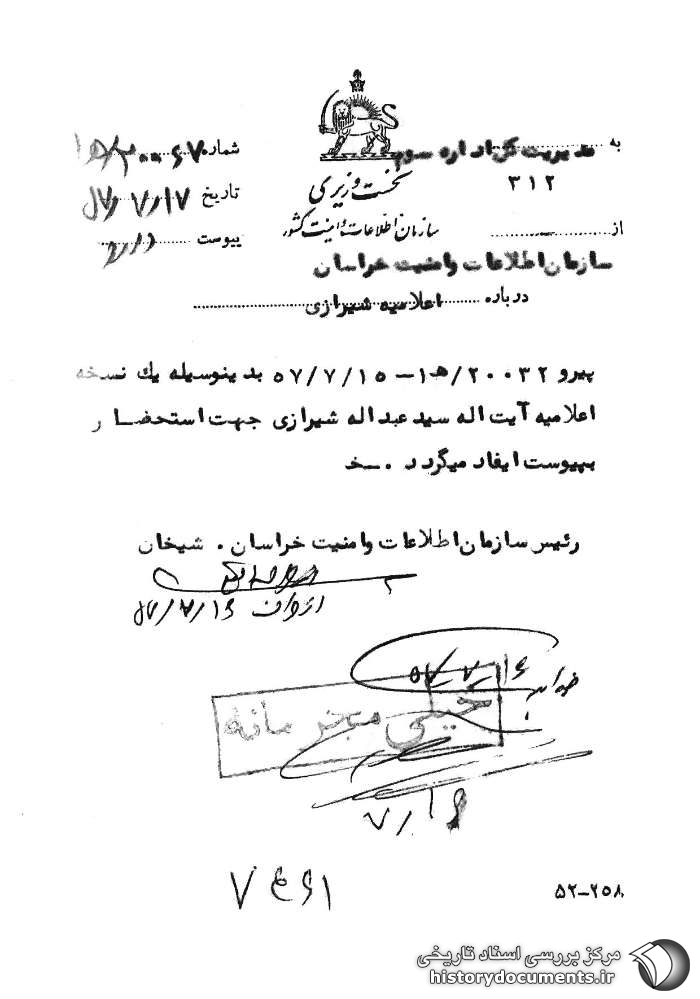 به مدیریت کل اداره سوم
۳۱۲
نخست وزیری
سازمان اطلاعات و امنیت کشور
شماره
تاریخ ۵۷/۷/۱۷
پیوست دارد
از
سازمان اطلاعات وامنیت خراسان
درباره اعلامیه شیرازی
پیرو ۲۰۰۳۲/ه۱–۵۷/۷/۱۵ بدینوسیله یك نسخه
اعلامیه آیت اله سید عبداله شیرازی جهت استحضار
بپیوست ایفاد میگردد .خ
رئیس سازمان اطلاعات وامنیت خراسان . شیخان
۵۷/۷/۱۶
۵۷-۷-۱۶
خیلی محرمانه
۷/۱۶
۵۲-۲۵۸
مرکز بررسی اسناد تاریخی
historydocuments.ir